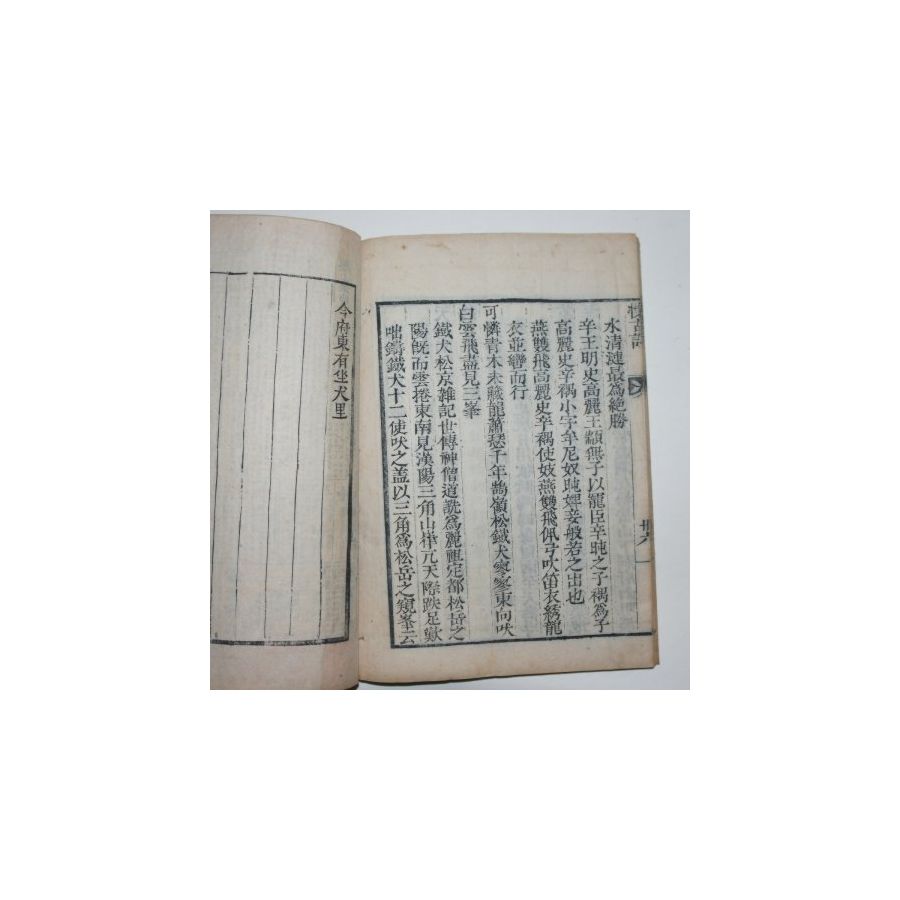 懷古詩
卅六
水清漣最為絶勝
辛王明史高麗王顓無子以寵臣辛旽之子禑爲子
高麗史辛禑小字牟尼奴旽婢妾般若之出也
燕雙飛高麗史辛禑使妓燕雙飛佩弓吹笛衣綉龍
衣並轡而行
可憐青木未藏龍蕭瑟千年鵠嶺松鐵犬寥寥東向吠
白雲飛盡見三峯
鐵犬松京雜記世傳神僧道詵爲麗祖定都松岳之
陽旣而雲捲東南見漢陽三角山崒兀天際跌足歎
咄鑄鐵犬十二使吠之盖以三角爲松岳之窺峯云
今府東有坐犬里